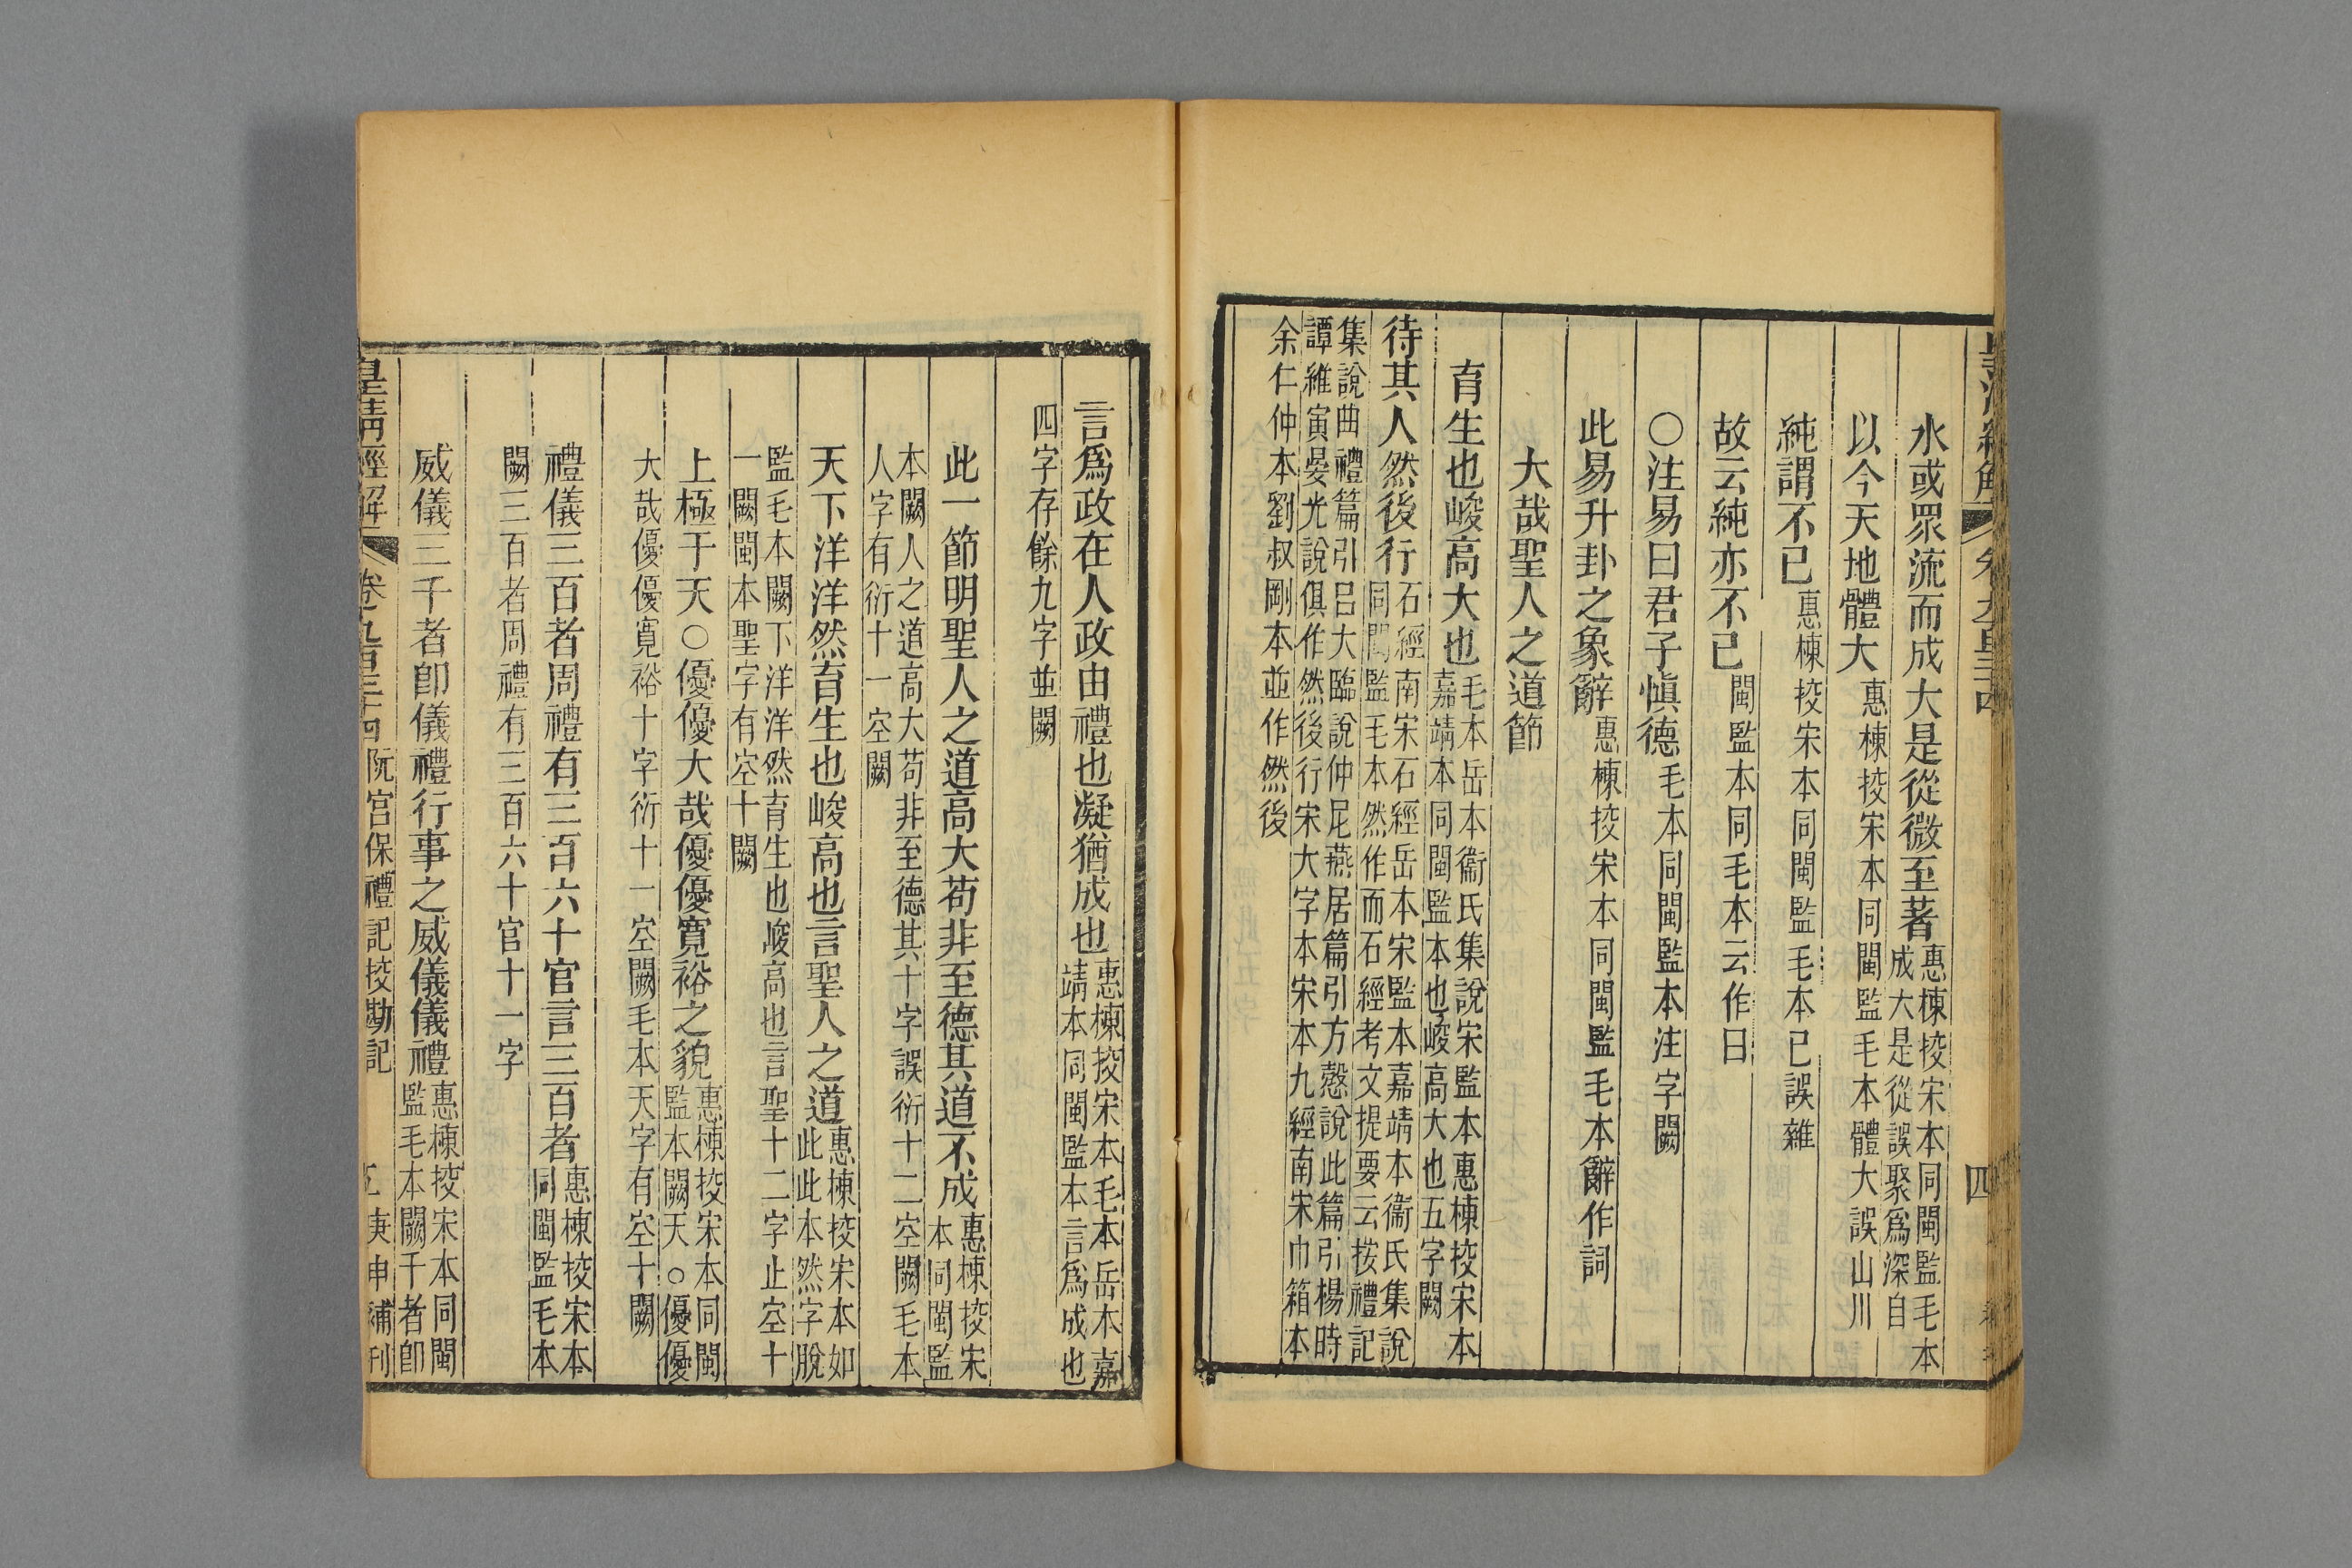 水或眾流而成大是從微至著惠棟挍宋本同閩監毛本
成大是從誤聚爲深自
以今天地體大惠棟挍宋本同閩監毛本體大誤山川
純謂不已惠棟挍宋本同閩監毛本已誤雜
故云純亦不已閩監本同毛本云作曰
〇注易曰君子愼德毛本同閩監本注字闕
此易升卦之象辭惠棟挍宋本同閩監毛本辭作詞
大哉聖人之道節
育生也峻高大也毛本岳本衞氏集說宋監本惠棟挍宋本
嘉靖本同閩監本也峻高大也五字闕
待其人然後行石經南宋石經岳本宋監本嘉靖本衞氏集說
同閩監毛本然作而石經考文提要云按禮記
集說曲禮篇引呂大臨說仲尼燕居篇引方慤說此篇引楊時
譚維寅晏光說俱作然後行宋大字本宋本九經南宋巾箱本
余仁仲本劉叔剛本並作然後
四
言爲政在人政由禮也凝猶成也惠棟挍宋本毛本岳本嘉
靖本同閩監本言爲成也
四字存餘九字並闕
此一節明聖人之道高大苟非至德其道不成惠棟挍宋
本同閩監
本闕人之道高大苟非至德其十字誤衍十二空闕毛本
人字有衍十一空闕
天下洋洋然育生也峻高也言聖人之道惠棟挍宋本如
此此本然字脫
監毛本闕下洋洋然育生也峻高也言聖十二字止空十
一闕閩本聖字有空十闕
上極于天〇優優大哉優優寬裕之貌惠棟挍宋本同閩
監本闕天〇優優
大哉優優寬裕十字衍十一空闕毛本天字有空十闕
禮儀三百者周禮有三百六十官言三百者惠棟挍宋本
同閩監毛本
闕三百者周禮有三百六十官十一字
威儀三千者卽儀禮行事之威儀儀禮惠棟挍宋本同閩
監毛本闕千者卽
皇淸經解 卷九百三十四 阮宮保禮記挍勘記 庚申補刊